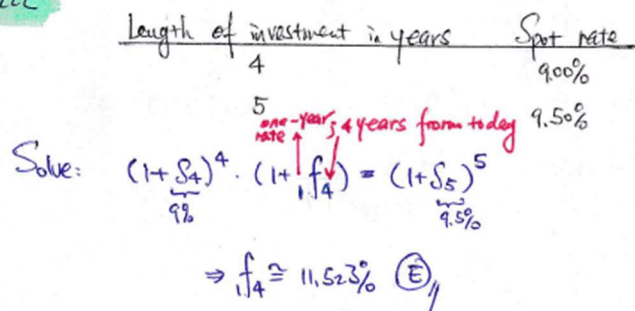 Length of investment in years Spot rate
4 9.00%
5 9.50%
one-year rate ; 4 years from today
Solve: (1+S₄)⁴ · (1+ ₁f₄) = (1+S₅)⁵
9% 9.5%
⇒ ₁f₄ ≅ 11.523% Ⓔ